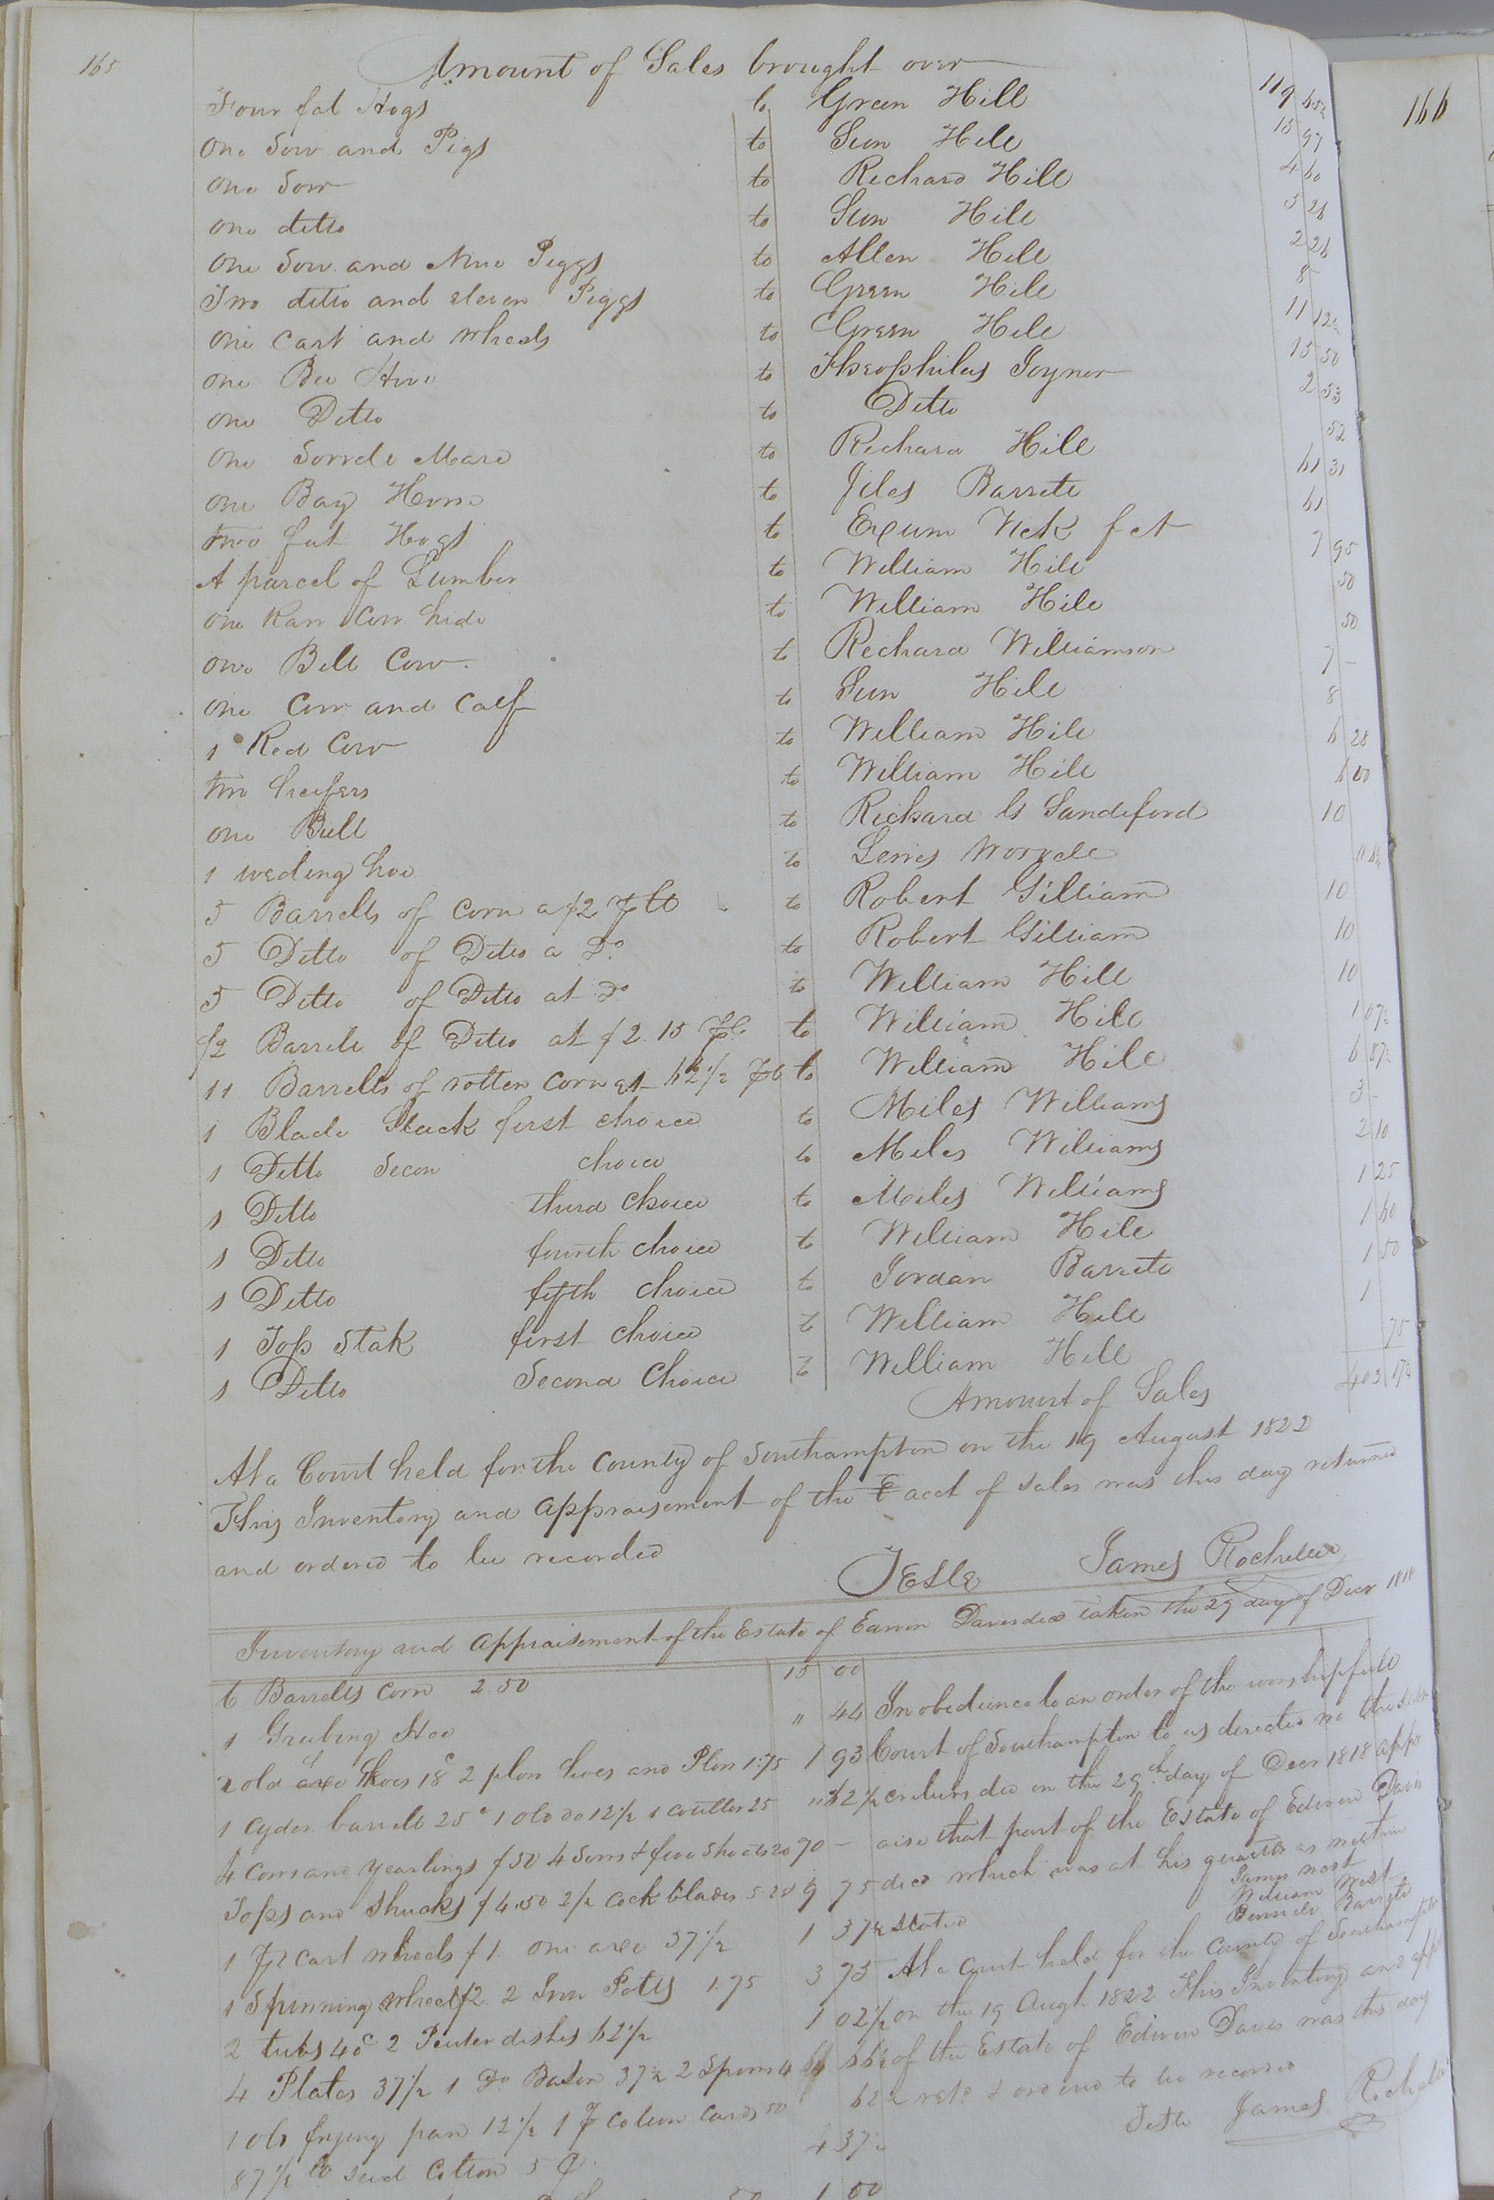 165
166
Amount of Sales brought over 119
Four fat Hogs to Green Hill 15 97
One Sow and Pigs to Sion Hill 4 60
One Sow to Richard Hill 5 28
One ditto to Sion Hill 2 26
One Sow and Nine Piggs to Allen Hill 8
Two ditto and eleven Piggs to Green Hill 11
One Cart and Wheels to Green Hill 15 50
One Bee Hive to Theophilus Joyner 2 53
One Ditto to Ditto 52
One Sorrele Mare to Richard Hill 61 31
One Bay Horse to Jiles Barrett 61
two fat Hogs to Exum Vick 7 95
A parcel of Lumber to William Hill 50
One Raw Cow hide to William Hill 50
One Bell Cow to Richard Williamson 7 –
One Cow and Calf to Sion Hill 8
1 Red Cow to William Hill 6 28
two heifers to William Hill 6 00
one Bull to Richard G Sandeford 10
1 weding hoe to Lewis Worrele
5 Barrells of corn a $2 to Robert Gilliam 10
5 Ditto of Ditto a Do to Robert Gilliam 10
5 Ditto of Ditto at Do to William Hill 10
1/2 Barrele of Ditto at $2.15 to William Hill 1 07½
11 Barrells of rotten corn at 62 1/2 to William Hill 6 87½
1 Blade Stack first choice to Miles Williams 3 –
1 Ditto Secon choice to Miles Williams 2 10
1 Ditto third choice to Miles Williams 1 25
1 Ditto fourth choice to William Hill 1 60
1 Ditto fifth choice to Jordan Barrett 1 50
1 Top Stak first choice to William Hill 1
1 Ditto Second Choice to William Hill 75
Amount of Sales 403
At a Court held for the County of Southampton on the 19 August 1822
This Inventory and appraisement of the acct of sales was this day returned
and ordered to be recorded
Teste James Rochelle
Inventory and appraisement of the Estate of taken the 29 day of Decr 1818
6 Barrells corn 2.50 15 00
1 Grubing Hoe " 44
2 old hoes 18c 2 plow hoes and Plow 1.75 1 93
1 Cyder barrell 25c 1 old do 12½ 1 25 " 62½
4 cows and yearlings $50 4 Sows & five Shoats 20 70 –
Tops and Shucks $4.50 2½ cock blades 5.25 9 75
1 pr cart wheels $1. one axe 37½ 1 37½
1 Spinning wheel $2. 2 Iron Potts 1.75 3 75
2 tubs 40c 2 Puter dishes 62½ 1 02½
4 Plates 37½ 1 Do Bason 37½ 2 Spoons
1 old frying pan 12½ 1 pr Cotton Cards 50 62½
87½ lb Seed Cotton 5 4 37½
1 00
In obedience to an order of the worshipfull
Court of Southampton to us directed we the
cribers did on the 29th day of Decr 1818 appr
aise that part of the Estate of Edwin Davis
decd which was at his quarter as within
stated
James West
William West
Barrett
At a Court held for the County of Southampton
on the 19 Augt. 1822 This Inventory and app
of the Estate of Edwin Davis was this day
retd & ordered to be recorded
Teste James Rochelle